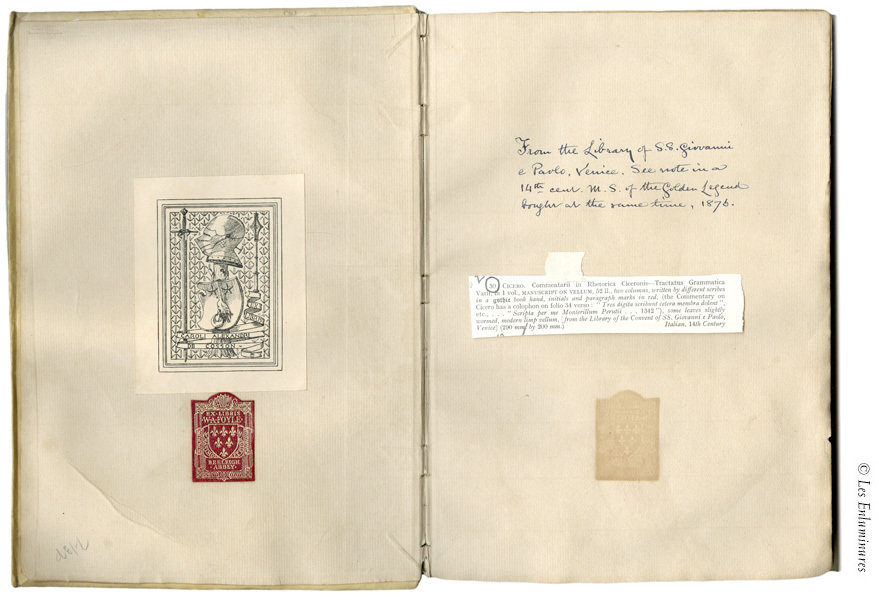 CAROLI ALEXANDRI
DE COSSON
EX·LIBRIS
W·A·FOYLE
BEELEIGH
·ABBEY·
From the Library of S.S. Giovanni
e Paolo, Venice. See note in a
14th cent. M.S. of the Golden Legend
bought at the same time, 1876.
30 CICERO. Commentarii in Rhetorica Ciceronis—Tractatus Grammatica
Varii, in 1 vol., MANUSCRIPT ON VELLUM, 52 ll., two columns, written by different scribes
in a gothic book hand, initials and paragraph marks in red, (the Commentary on
Cicero has a colophon on folio 34 verso: "Tres digita scribunt cetera membra dolent",
etc., . . . "Scripta per me Monterillum Perutii . . . 1342"), some leaves slightly
wormed, modern limp vellum, [from the Library of the Convent of SS. Giovanni e Paolo,
Venice] (290 mm. by 200 mm.) Italian, 14th Century
© Les Enluminures